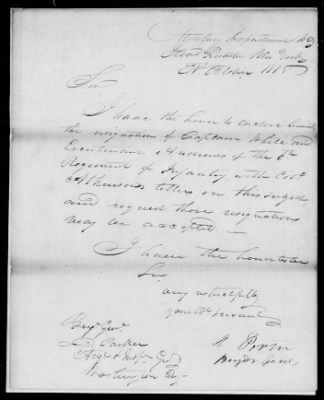 Head Quarters New York
October 1815
Sir
I have the honor to enclose herewith
the resignation of Captain White and
Lieutenant Andrews of the 6th
Regiment of Infantry, with Col.
Atkinson's letters on this subject,
and request those resignations
may be accepted —
I have the honor to be
Sir
very respectfully
your Obt Servant
Brig. Genl
D. Parker
Adjt & Insp. Genl
Washington City